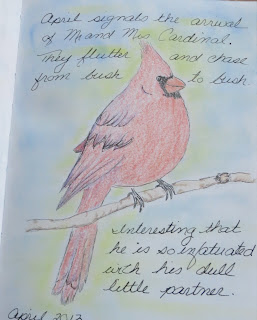 April signals the arrival
of Mr and Mrs Cardinal.
They flutter and chase
from bush to bush.
Interesting that
he is so infatuated
with his dull
little partner.
April 2013